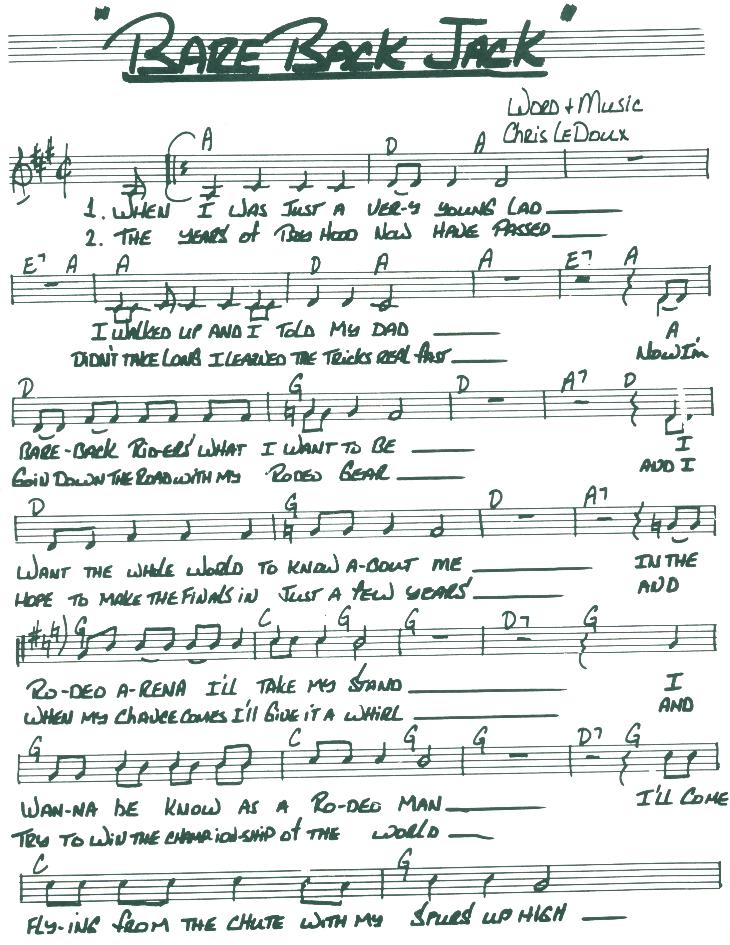 "BARE BACK JACK"
WORD + MUSIC
CHRIS LEDOUX
A D A
1. WHEN I WAS JUST A VER-Y YOUNG LAD
2. THE YEARS OF BOY HOOD NOW HAVE PASSED
E7 A A D A A E7 A
I WALKED UP AND I TOLD MY DAD A
DIDN'T TAKE LONG I LEARNED THE TRICKS REAL FAST NOW I'M
D G D A7 D
BARE-BACK RID-ERS' WHAT I WANT TO BE I
GOIN DOWN THE ROAD WITH MY RODEO GEAR AND I
D G D A7
WANT THE WHOLE WORLD TO KNOW A-BOUT ME IN THE
HOPE TO MAKE THE FINALS IN JUST A FEW YEARS' AND
G C G G D7 G
RO-DEO A-RENA I'LL TAKE MY STAND I
WHEN MY CHANCE COMES I'LL GIVE IT A WHIRL AND
G C G G D7 G
WAN-NA BE KNOW AS A RO-DEO MAN I'LL COME
TRY TO WIN THE CHAMPIONSHIP OF THE WORLD
C G
FLY-ING FROM THE CHUTE WITH MY SPURS' UP HIGH